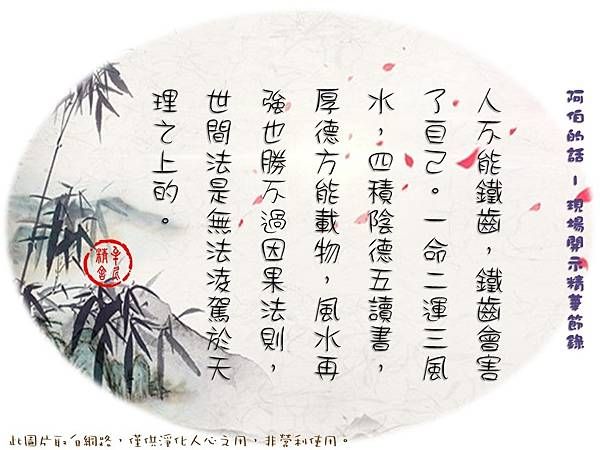 阿伯的話 - 現場開示精華節錄
人不能鐵齒，鐵齒會害
了自己。一命二運三風
水，四積陰德五讀書，
厚德方能載物，風水再
強也勝不過因果法則，
世間法是無法淩駕於天
理之上的。
此圖片取自網路，僅供淨化人心之用，非營利使用。